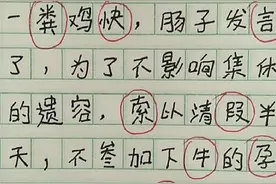 一粪鸡快，肠子发言
了，为了不影响集休
的遗容，索以清假半
天，不参加下牛的孕